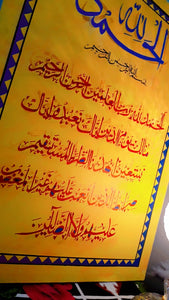 الحمد لله
بسم الله الرحمن الرحيم
الحمد لله رب العالمين الرحمن الرحيم
مالك يوم الدين اياك نعبد واياك
نستعين اهدنا الصراط المستقيم
صراط الذين انعمت عليهم غير المغضوب
عليهم ولا الضالين